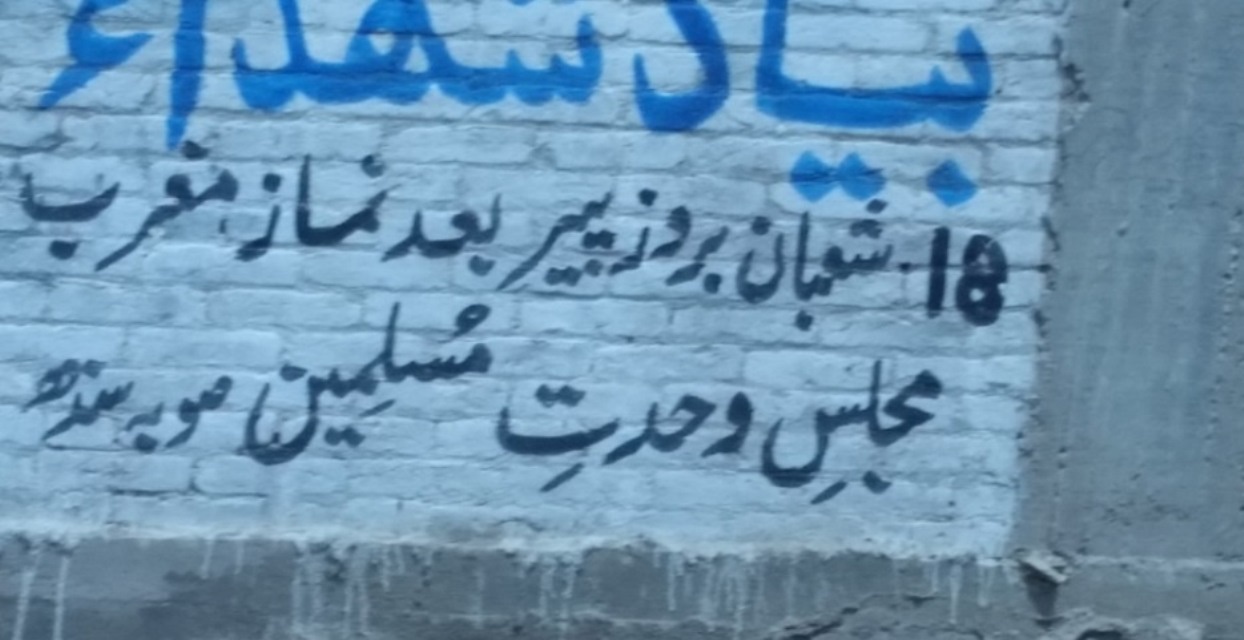 بیاد شھداء
18 شعبان بروز پیر بعد نماز مغرب
مجلسِ وحدتِ مُسلِمین صوبہ سندھ